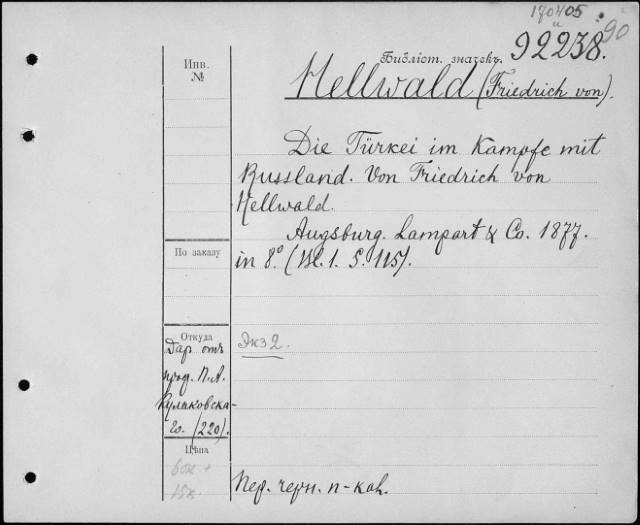 170405
90
Библіот. значекъ.
92238.
Инв. №
Hellwald (Friedrich von).
Die Türkei im Kampfe mit
Russland. Von Friedrich von
Hellwald.
Augsburg. Lampart & Co. 1877.
in 8.° (Bl. 1. S. 115).
По заказу
Откуда
Дар отъ
проф. П. А.
Кулаковска-
го. (220).
Экз 2.
Цѣна
60к. +
15к.
Пер. черн. п-кол.